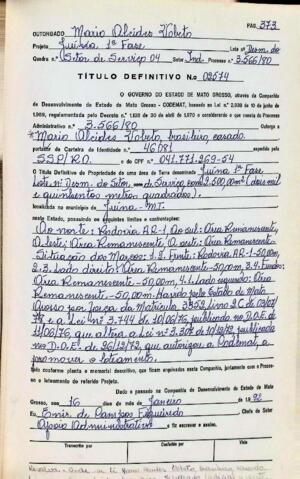 PAG. 373
OUTORGADO Mario Alcides Vobeto
Projeto Juina 1ª Fase Lote nº Desm. do
Quadra nº Setor de Serviço 04 Setor Ind. Processo nº 3.566/80
TÍTULO DEFINITIVO N.o 03574
O GOVERNO DO ESTADO DE MATO GROSSO, através da Companhia
de Desenvolvimento do Estado de Mato Grosso - CODEMAT, baseado na Lei n.º de 10 de junho
de 1966, regulamentada pelo Decreto n.º de 30 de abril de 1970 e considerando o que consta do Processo
Administrativo n.º 3.566/80 Outorga a
Mario Alcides Vobeto, brasileiro, casado.
portador da Carteira de Identidade n.º 46081 expedida pela
SSP/RO. e do CPF n.º 041.771.269-54
O Título Definitivo de Propriedade de uma área de Terra denominada Juina 1ª Fase
Lote nº Desm. do Setor, de Serviço com 2.500,00m² (dois mil
e quinhentos metros quadrados).
localizada no município de Juina - MT.
neste Estado, possuindo os seguintes limites e confrontações:
Ao norte: Rodovia AR-1, Ao sul: Área Remanescente,
A leste: Área Remanescente, A oeste: Área Remanescente-
Situação dos Marcos: 1.2. Frente: Rodovia AR-1-50,00m,
2.3. Lado direito: Área Remanescente-50,00m, 3.4. fundos:
Área Remanescente-50,00m, 4.1. Lado esquerdo: Área
Remanescente-50,00m. Havido pelo Estado de Mato
Grosso por força da Matrícula Livro 2
e a Lei nº 3.744 de 10/06/76, publicado no D.O.E. de
11/06/76, que altera a Lei nº 3.307 de 18/12/72, publicada
no D.O.E. de 26/12/72, que autorizou a Codemat, a
promover o loteamento.
Tudo conforme planta e memorial descritivo, que ficam arquivados nesta Companhia, juntamente com o Processo
em loteamento do referido Projeto.
Dado e passado na Companhia de Desenvolvimento do Estado de Mato
Grosso, aos 16 dias do mês de Janeiro de 19 82
Eu, Enir de Campos Figueiredo Chefe do Setor
Apoio Administrativo o fiz escrever e assino.
Transcrito por Conferido por
VISTO